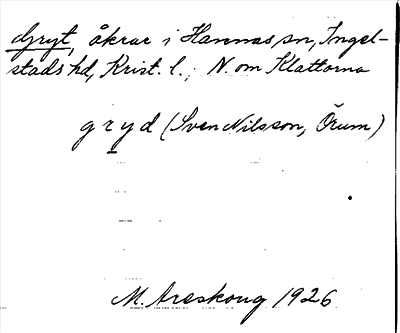 Gryt, åkrar i Hannas sn, Ingel-
stads hd, Krist. l.; N. om Klattorna
gryd (Sven Nilsson, Örum)
M. Areskoug 1926